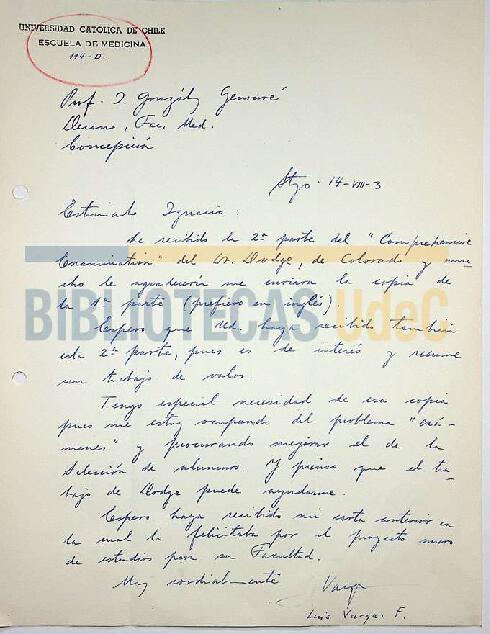 UNIVERSIDAD CATOLICA DE CHILE
ESCUELA DE MEDICINA
114-D
Prof. I. González Genouvé
Decano, Fac. Med.
Concepción
Stgo - 14-VIII-3
Estimado Ignacio:
he recibido la 2ª parte del "Comprehensive
Examination" del Dr. Dodge, de Colorado y mu-
cho le agradecería me enviara la copia de
la 1ª parte (prefiero en inglés)
Espero que Ud. haya recibido también
esta 2ª parte, pues es de interés y resume
un trabajo de valor.
Tengo especial necesidad de esa copia
pues me estoy ocupando del problema "exá-
menes" y procurando mejorar el de la
Selección de alumnos y pienso que el tra-
bajo de Dodge puede ayudarme.
Espero haya recibido mi carta anterior en
la cual lo felicitaba por el proyecto nuevo
de estudios para su Facultad.
Muy cordialmente Vargas
Luis Vargas F.
BIBLIOTECAS UdeC